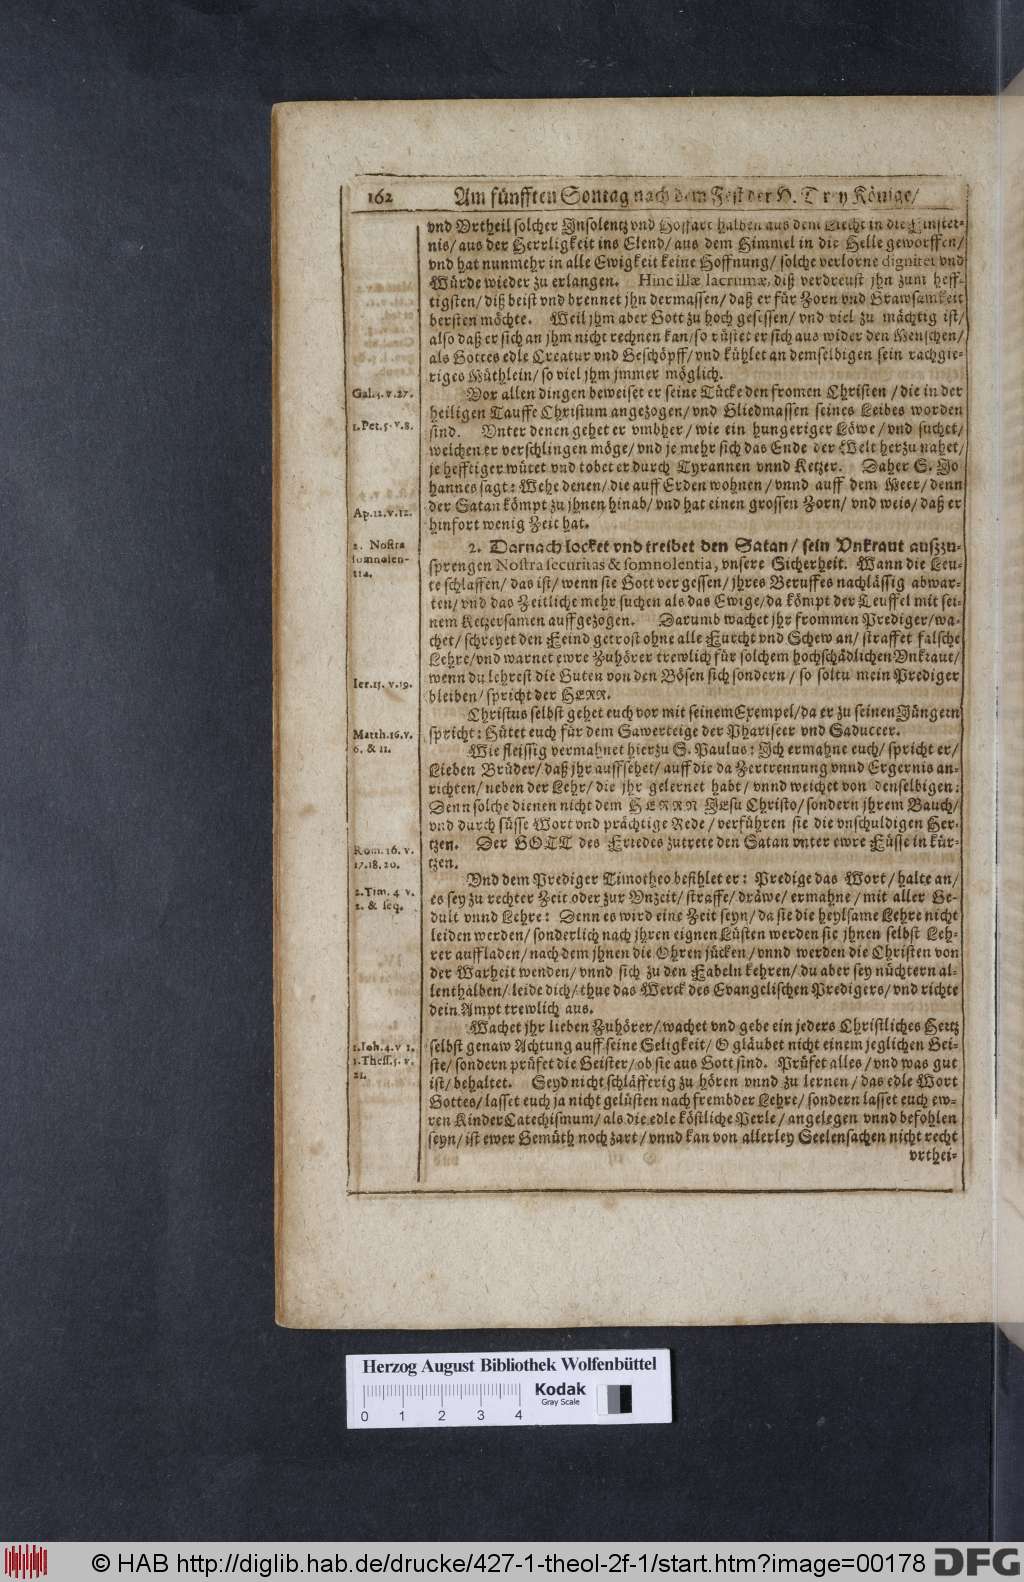 162 Am fünfften Sontag nach dem Fest der H. Drey Könige/
vnd Vrtheil solcher Insolentz vnd Hoffart halben aus dem Liecht in die Finster-
nis/ aus der Herrligkeit ins Elend/ aus dem Himmel in die Helle geworffen/
vnd hat nunmehr in alle Ewigkeit keine Hoffnung/ solche verlorne dignitet vnd
Würde wieder zu erlangen. Hinc illæ lacrumæ, diß verdreust jhn zum heff-
tigsten/ diß beist vnd brennet jhn dermassen/ daß er für Zorn vnd Grawsamkeit
bersten möchte. Weil jhm aber Gott zu hoch gesessen/ vnd viel zu mächtig ist/
also daß er sich an jhm nicht rechnen kan/ so rüstet er sich aus wider den Menschen/
als Gottes edle Creatur vnd Geschöpff/ vnd kühlet an demselbigen sein rachgie-
riges Müthlein/ so viel jhm jmmer möglich.
Gal. 3. v. 27.
Vor allen dingen beweiset er seine Tücke den fromen Christen/ die in der
heiligen Tauffe Christum angezogen/ vnd Gliedmassen seines Leibes worden
1. Pet. 5. v. 8.
sind. Vnter denen gehet er vmbher/ wie ein hungeriger Löwe/ vnd suchet/
welchen er verschlingen möge/ vnd je mehr sich das Ende der Welt herzu nahet/
je hefftiger wütet vnd tobet er durch Tyrannen vnnd Ketzer. Daher S. Jo
hannes sagt: Wehe denen/ die auff Erden wohnen/ vnnd auff dem Meer/ denn
Ap. 12. v. 12.
der Satan kömpt zu jhnen hinab/ vnd hat einen grossen Zorn/ vnd weis/ daß er
hinfort wenig Zeit hat.
2. Nostra
somnolen-
tia.
2. Darnach locket vnd treibet den Satan/ sein Vnkraut auszzu-
sprengen Nostra securitas & somnolentia, vnsere Sicherheit. Wann die Leu-
te schlaffen/ das ist/ wenn sie Gott vergessen/ jhres Beruffes nachlässig abwar-
ten/ vnd das Zeitliche mehr suchen als das Ewige/ da kömpt der Teuffel mit sei-
nem Ketzersamen auffgezogen. Darumb wachet jhr frommen Prediger/ wa-
chet/ schreyet den Feind getrost ohne alle Furcht vnd Schew an/ straffet falsche
Lehre/ vnd warnet ewre Zuhörer trewlich für solchem hochschädlichen Vnkraut/
Ier. 15. v. 19.
wenn du lehrest die Guten von den Bösen sich sondern/ so soltu mein Prediger
bleiben/ spricht der HERR.
Christus selbst gehet euch vor mit seinem Exempel/ da er zu seinen Jüngern
Matth. 16. v.
6. & 11.
spricht: Hütet euch für dem Sawerteige der Phariseer vnd Saduceer.
Wie fleissig vermahnet hierzu S. Paulus: Ich ermahne euch/ spricht er/
Lieben Brüder/ daß jhr auffsehet/ auff die da Zertrennung vnnd Ergernis an-
richten/ neben der Lehr/ die jhr gelernet habt/ vnnd weichet von denselbigen:
Denn solche dienen nicht dem HERRN JEsu Christo/ sondern jhrem Bauch/
vnd durch süsse Wort vnd prächtige Rede/ verführen sie die vnschuldigen Her-
Rom. 16. v.
17. 18. 20.
tzen. Der GOTT des Friedes zutrete den Satan vnter ewre Füsse in kür-
tzen.
2. Tim. 4 v.
2. & seq.
Vnd dem Prediger Timotheo befihlet er: Predige das Wort/ halte an/
es sey zu rechter Zeit oder zur Vnzeit/ straffe/ dräwe/ ermahne/ mit aller Ge-
dult vnnd Lehre: Denn es wird eine Zeit seyn/ da sie die heylsame Lehre nicht
leiden werden/ sonderlich nach jhren eignen Lüsten werden sie jhnen selbst Leh-
rer auffladen/ nach dem jhnen die Ohren jücken/ vnnd werden die Christen von
der Warheit wenden/ vnnd sich zu den Fabeln kehren/ du aber sey nüchtern al-
lenthalben/ leide dich/ thue das Werck des Evangelischen Predigers/ vnd richte
dein Ampt trewlich aus.
Wachet jhr lieben Zuhörer/ wachet vnd gebe ein jeders Christliches Hertz
1. Ioh. 4. v 1.
1. Thess. 5. v.
21.
selbst genaw Achtung auff seine Seligkeit/ O gläubet nicht einem jeglichen Gei-
ste/ sondern prüfet die Geister/ ob sie aus Gott sind. Prüfet alles/ vnd was gut
ist/ behaltet. Seyd nicht schläfferig zu hören vnnd zu lernen/ das edle Wort
Gottes/ lasset euch ja nicht gelüsten nach frembder Lehre/ sondern lasset euch ew-
ren KinderCatechismum/ als die edle köstliche Perle/ angelegen vnnd befohlen
seyn/ ist ewer Gemüth noch zart/ vnnd kan von allerley Seelensachen nicht recht
vrthei-
Herzog August Bibliothek Wolfenbüttel
Kodak
Gray Scale
0 1 2 3 4
© HAB http://diglib.hab.de/drucke/427-1-theol-2f-1/start.htm?image=00178 DFG